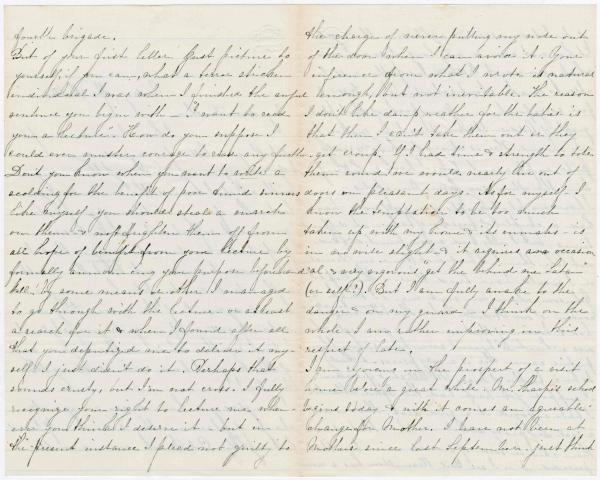 fourth brigade.
But of your first letter. Just picture to
yourself, if you can, what a terror stricken
individual I was when I finished the awful
sentence you begin with - "I want to read
you a lecture". How do you suppose I
could ever muster courage to read any further.
Don't you know when you want to write a
scolding for the benefit of poor timid sinners
like myself you should steal a march
on them & not frighten them off from
all hope of benefit from your lecture by
formally announcing your purpose beforehand.
by some means or other I managed
to go through with the lecture or at least
a search for it & when I found after all
that you deputized me to deliver it my-
self I just didn't do it. Perhaps that
sounds crusty, but I'm not cross. I fully
recognize your right to lecture me, when-
ever you think I deserve it - but in
the present instance I plead not guilty to
the charge of never putting my nose out
of the door when I can avoid it. Your
inference from what I wrote is natural
enough, but not inevitable. The reason
I don't like damp weather for the babies is
that then I can't take them out or they
get croup. If I had time & strength to tote
them round we would nearly live out of
doors on pleasant days. As for myself I
know the temptation to be too much
taken up with my home & its inmates - is
in no wise slight & it requires an occasion
al & very vigorous "get thee behind me Satan"
(or self?). But I am fully awake to the
danger & on my guard & I think on the
whole I am rather improving in this
respect of late.
I am rejoicing in the prospect of a visit
home before a great while. Mr. Tharpe's school
begins today & with it comes an agreeable
change for Mother. I have not been at
Mothers since last September. Just think